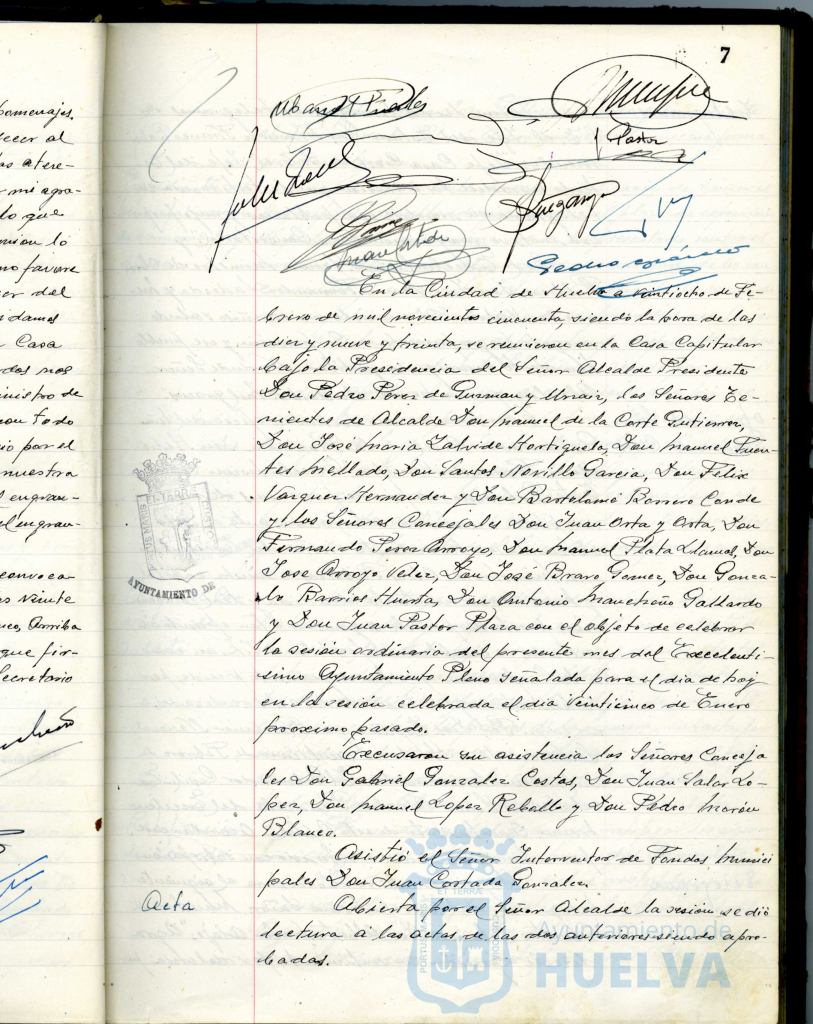 7
omenajes.
ecer al
r mi agra-
lo que
mion lo
no favore
er del
idamos
Casa
dos nos
inistro de
con todo
io por el
nuestra
engran-
el engran-
convoca-
veinte
Arriba
que fir-
Secretario
Pastor
En la Ciudad de Huelva a veintiocho de Fe-
brero de mil novecientos cincuenta, siendo la hora de las
diez y nueve y treinta, se reunieron en la Casa Capitular
bajo la Presidencia del Señor Alcalde Presidente
Don Pedro Perez de Guzman y Urzaiz, los Señores Te-
nientes de Alcalde Don Manuel de la Corte Gutierrez,
Don José Maria Zalvide Hortiguela, Don Manuel Fuen-
tes Mellado, Don Santos Novillo Garcia, Don Felix
Vazquez Hernandez y Don Bartolomé Borrero Conde
y los Señores Concejales Don Juan Orta y Orta, Don
Fernando Perez Arroyo, Don Manuel Plata Llamas, Don
Jose Arroyo Velez, Don José Bravo Gomez, Don Gonza-
lo Barrios Huerta, Don Antonio Mancheño Gallardo
y Don Juan Pastor Plaza con el objeto de celebrar
la sesión ordinaria del presente mes del Excelenti-
simo Ayuntamiento Pleno señalada para el dia de hoy
en la sesión celebrada el dia veinticinco de Enero
proximo pasado.
Excusaron su asistencia los Señores Conceja
les Don Gabriel Gonzalez Costas, Don Juan Salas Lo-
pez, Don Manuel Lopez Rebollo y Don Pedro Morón
Blanco.
Asistió el Señor Interventor de Fondos Munici
pales Don Juan Cortada Gonzalez.
Acta Abierta por el Señor Alcalde la sesión se dió
lectura á las actas de las dos anteriores siendo apro-
badas.
AYUNTAMIENTO DE
Ayuntamiento de
HUELVA